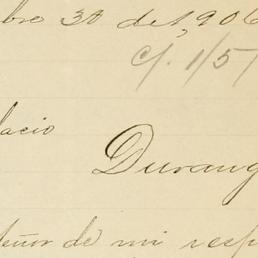 bre 30 de 1,906
c/. 1/57
lacio
Durang
eñor de mi resp